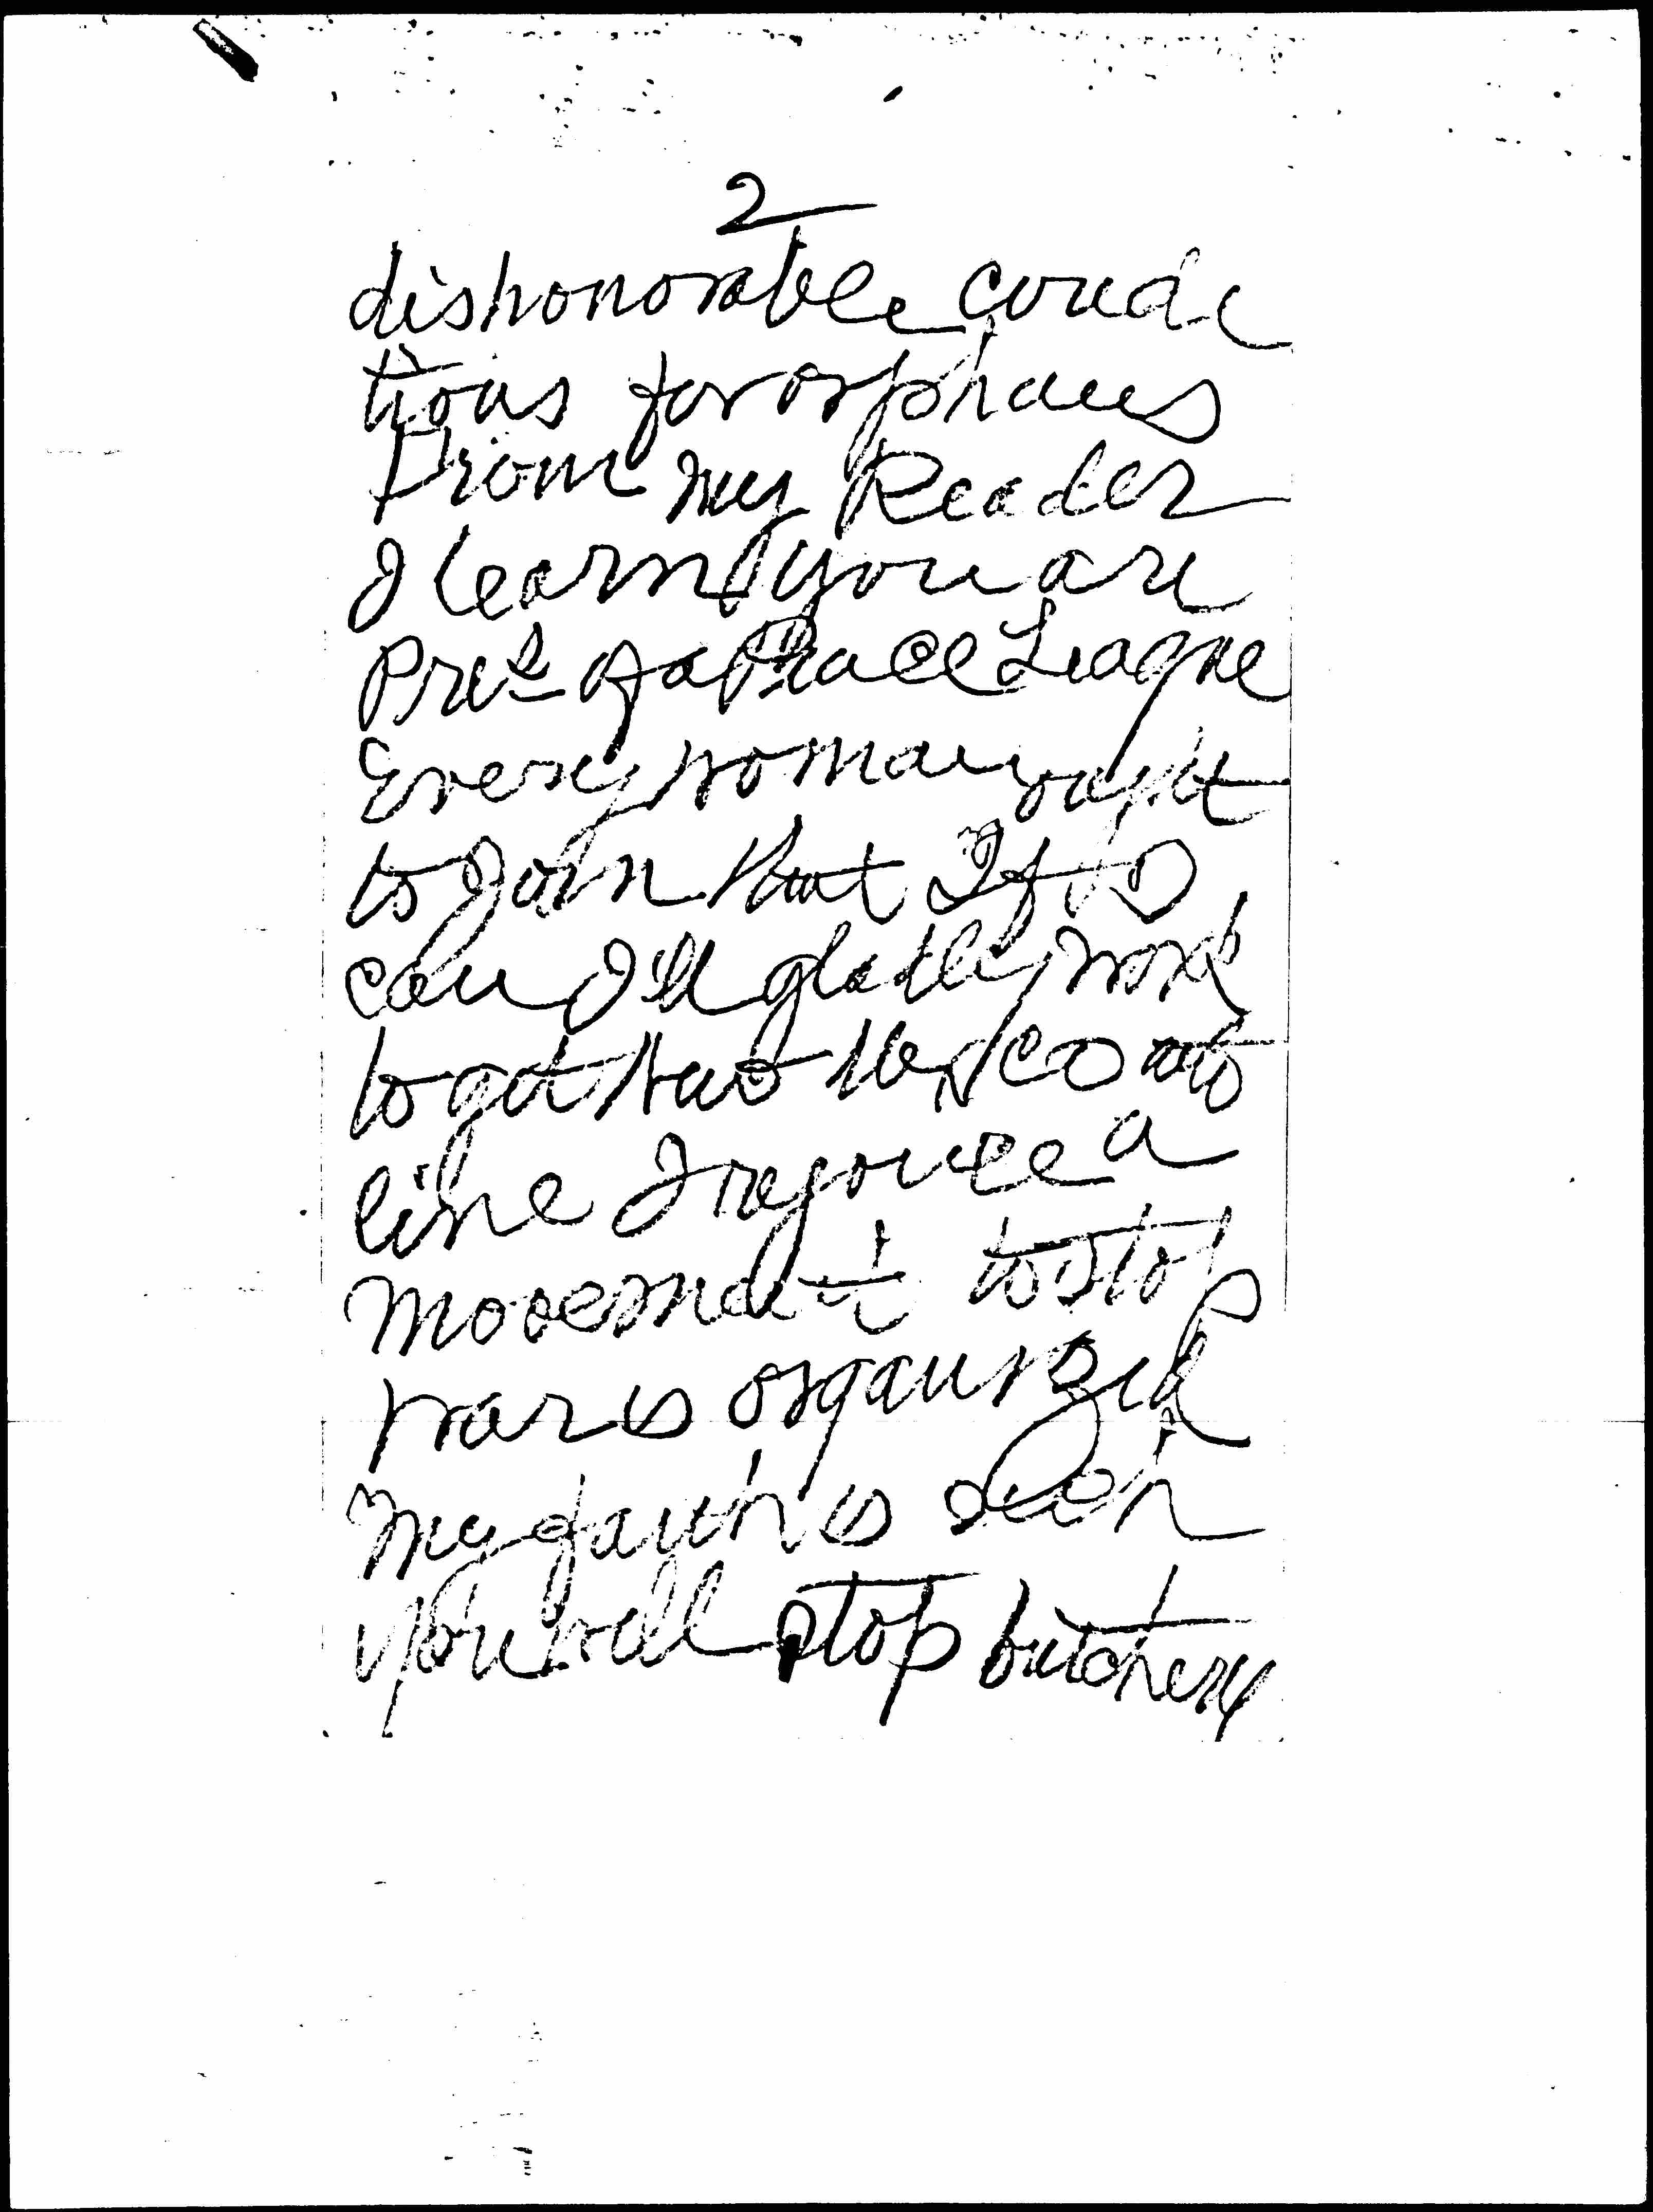 2
dishonorable condi
tions for orphans
From my Reader
I learn you are
Pres of a Peace League
Every woman ought
to join that If I
can I'll gladly work
to get two
line I rejoice a
movement to stop
war is organized
My faith is such
You will stop butchery